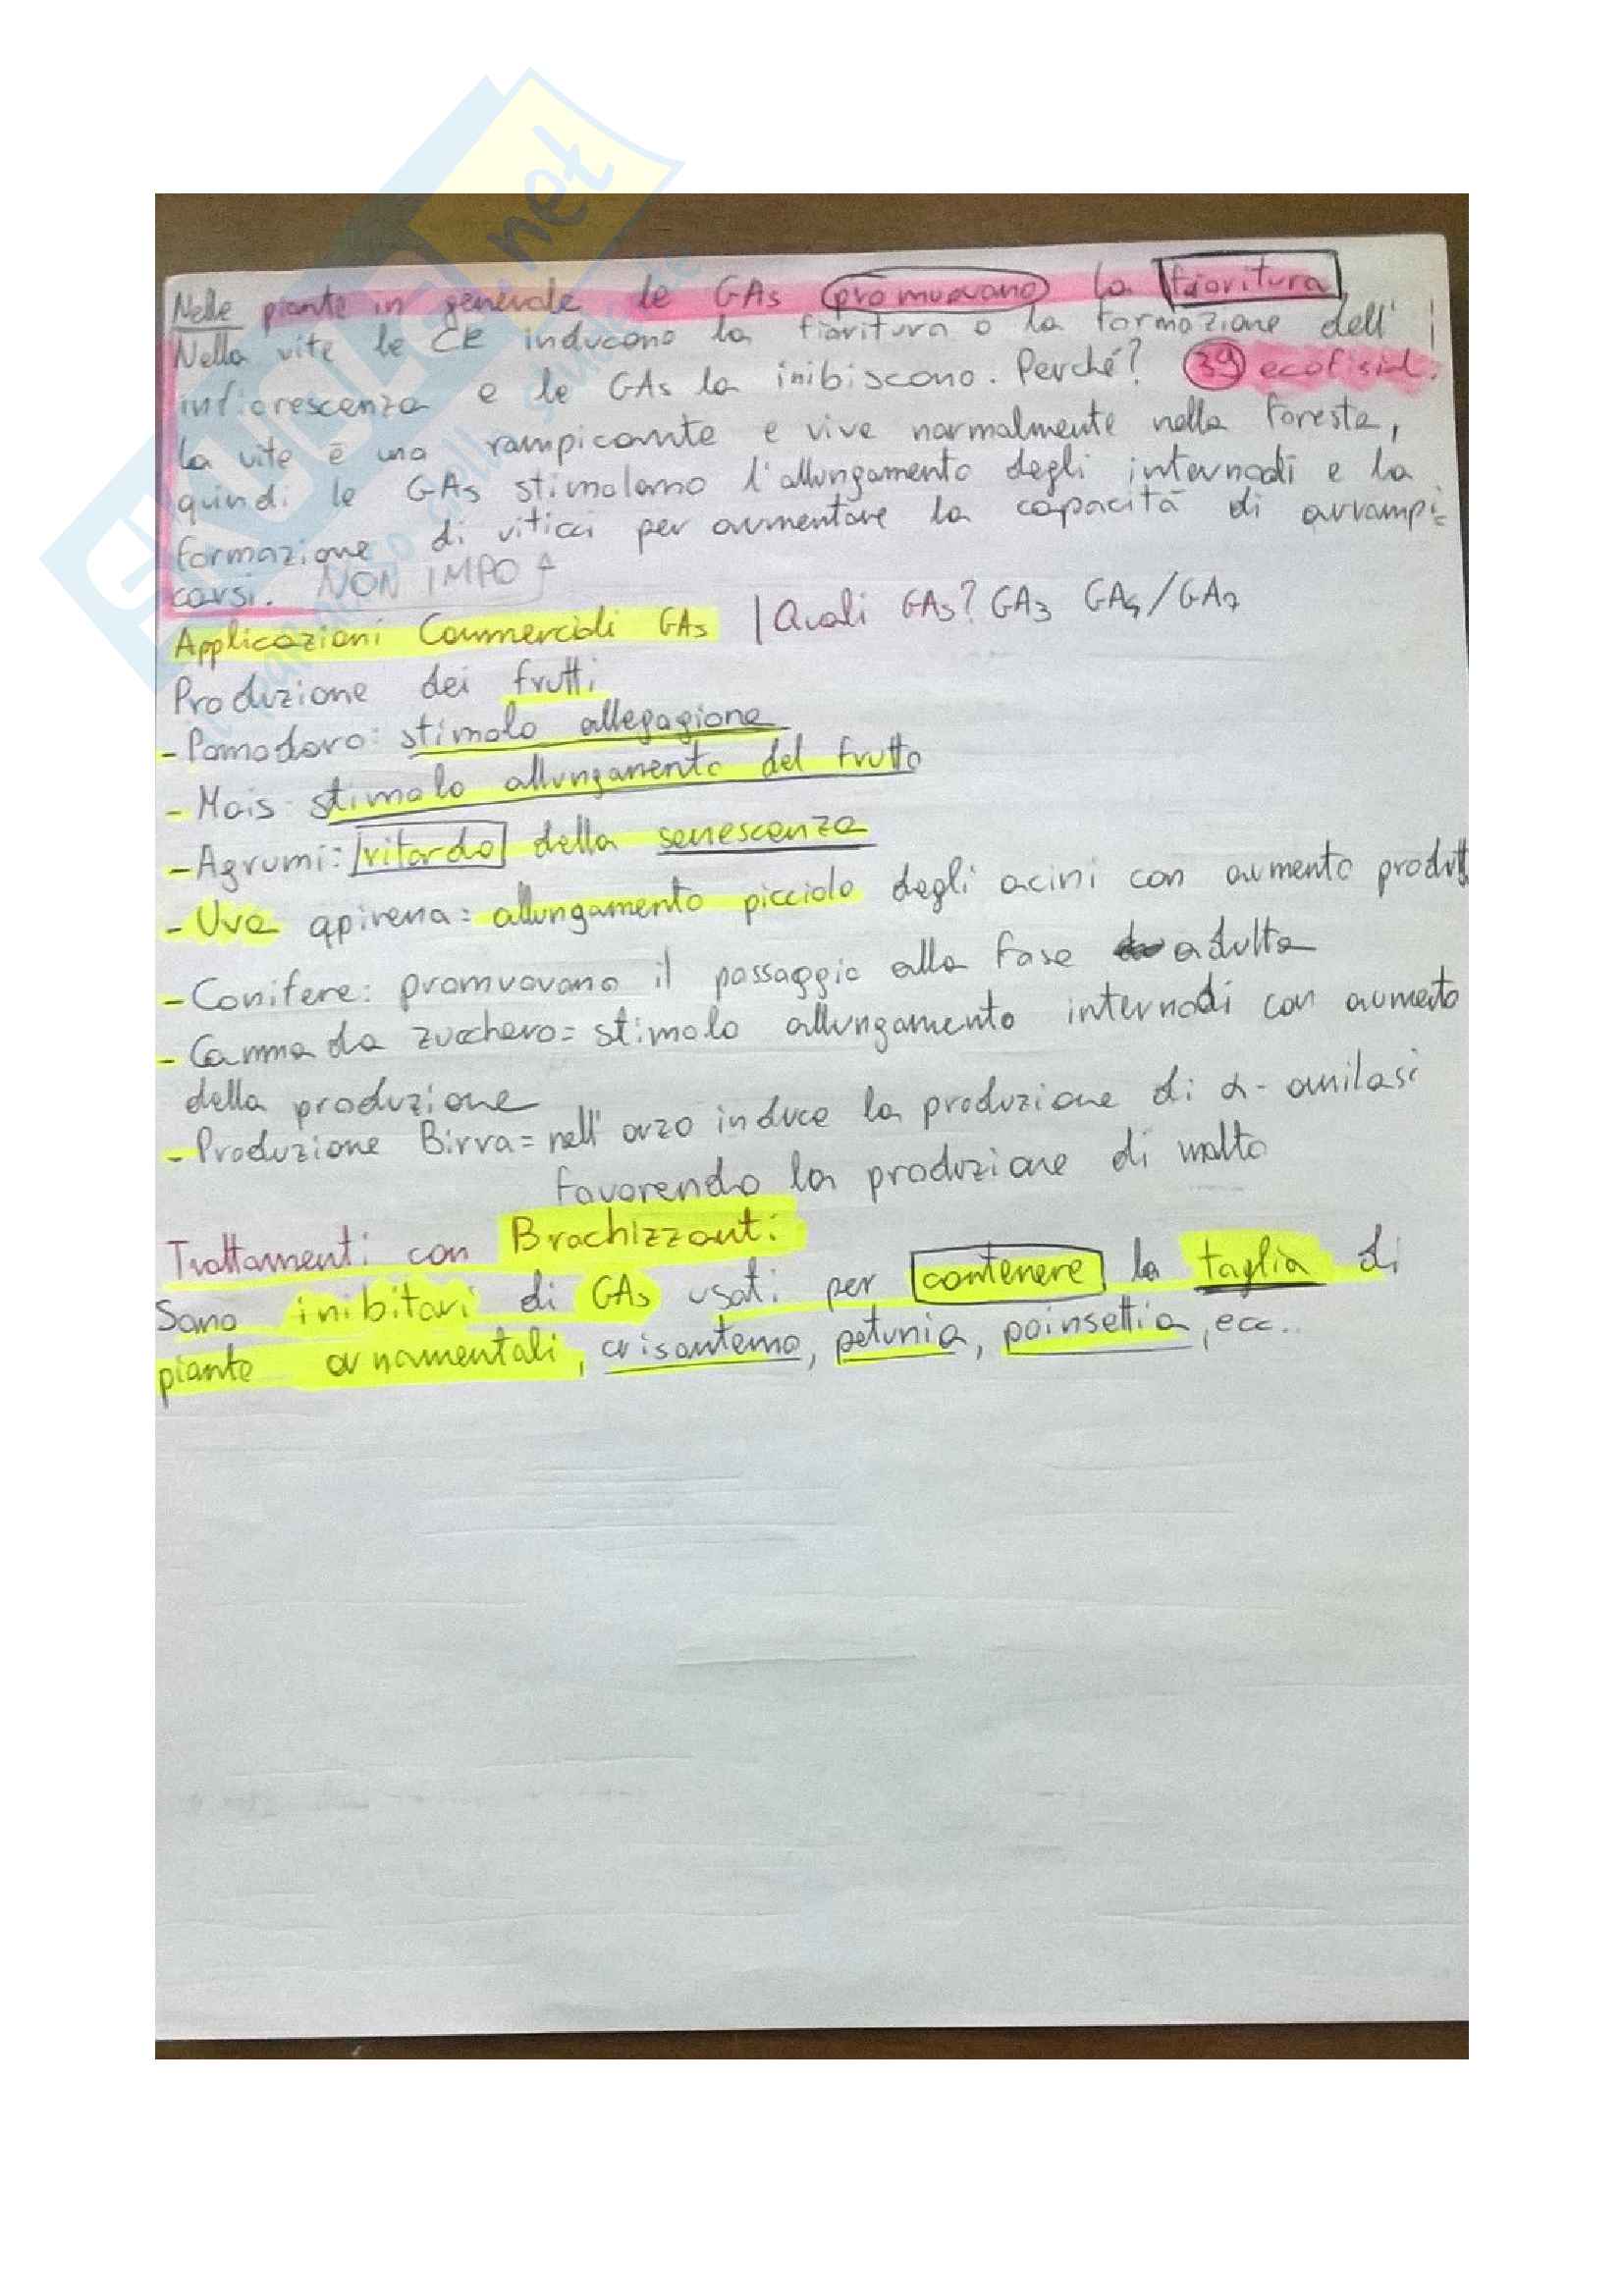 Nelle piante in generale le GAs promuovono la fioritura
Nella vite le CK inducono la fioritura o la formazione dell'
inflorescenza e le GAs la inibiscono. Perché? 39 ecofisiol.
La vite è una rampicante e vive normalmente nella foresta,
quindi le GAs stimolano l'allungamento degli internodi e la
formazione di viticci per aumentare la capacità di arrampi=
carsi. NON IMPO
Applicazioni Commerciali GAs | Quali GAs? GA3 GA4/GA7
Produzione dei frutti
- Pomodoro: stimolo allegagione
- Mais: stimolo allungamento del frutto
- Agrumi: ritardo della senescenza
- Uva apirena= allungamento picciolo degli acini con aumento produtt
- Conifere: promuovono il passaggio alla fase adulta
- Canna da zucchero= stimolo allungamento internodi con aumento
della produzione
- Produzione Birra= nell'orzo induce la produzione di α-amilasi
favorendo la produzione di malto
Trattamenti con Brachizzanti:
Sono inibitori di GAs usati per contenere la taglia di
piante ornamentali, crisantemo, petunia, poinsettia, ecc..
net